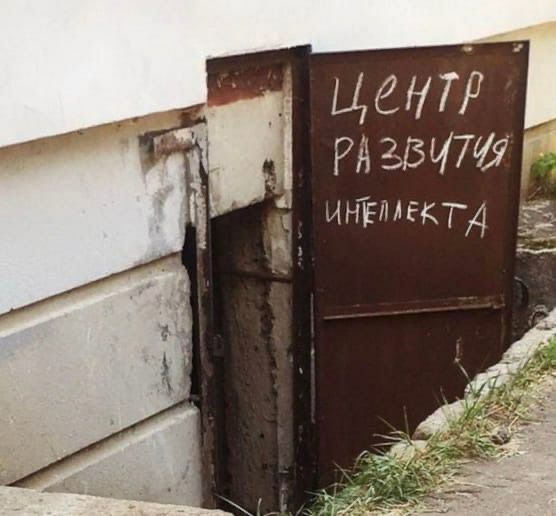 ЦеНТР
РАЗВИТИЯ
ИНТЕЛЛЕКТА